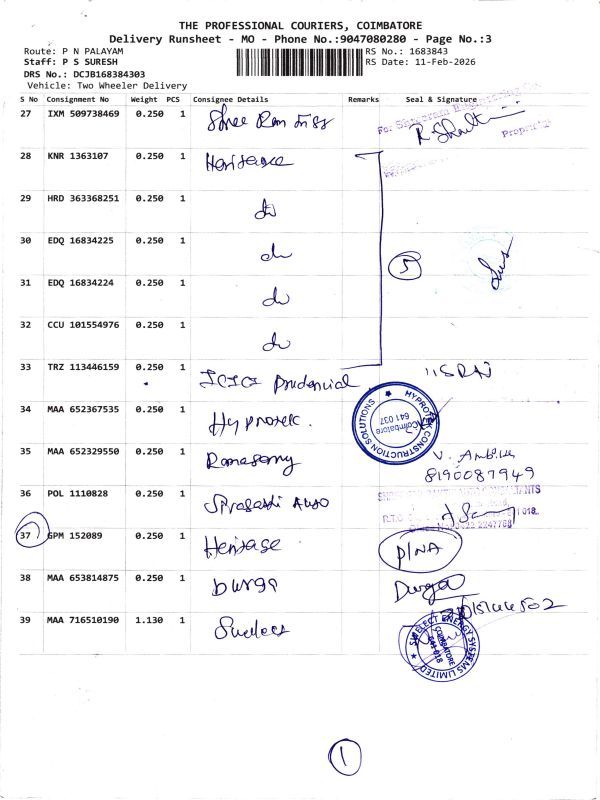 THE PROFESSIONAL COURIERS, COIMBATORE
Delivery Runsheet - MO - Phone No.:9047080280 - Page No.:3
Route: P N PALAYAM
RS No.: 1683843
Staff: P S SURESH
RS Date: 11-Feb-2026
DRS No.: DCJB168384303
Vehicle: Two Wheeler Delivery
S No Consignment No Weight PCS Consignee Details Remarks Seal & Signature
27 IXM 509738469 0.250 1 Shree Ram
28 KNR 1363107 0.250 1 Heritage
29 HRD 363368251 0.250 1 do
30 EDQ 16834225 0.250 1 do
31 EDQ 16834224 0.250 1 do
5
32 CCU 101554976 0.250 1 do
33 TRZ 113446159 0.250 1 ICICI Prudencial
34 MAA 652367535 0.250 1 Hyprotec.
HYPROTEC CONSTRUCTION SOLUTIONS
Coimbatore
641 037
35 MAA 652329550 0.250 1 Ramasamy
8190087949
36 POL 1110828 0.250 1 Auto
37 GPM 152089 0.250 1 Heritage P/NA
38 MAA 653814875 0.250 1 Durga Durga
39 MAA 716510190 1.130 1 Suelecs
ENERGY SYSTEMS LIMITED
COIMBATORE
641-018
1